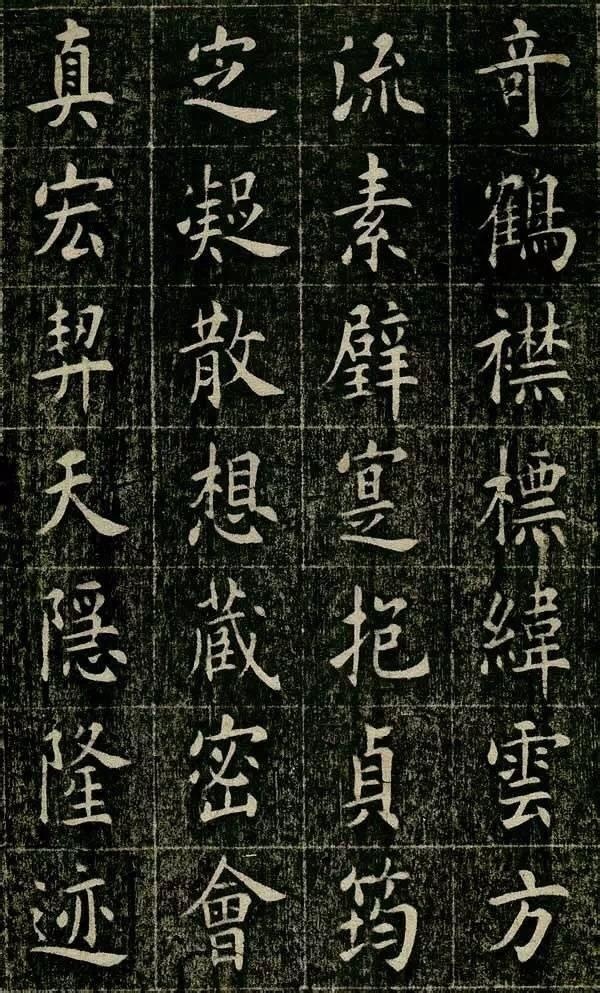 竒鶴襟標緯雲方
流素璧寔抱貞筠
定凝散想蔵密會
真宏契天隠隆迹